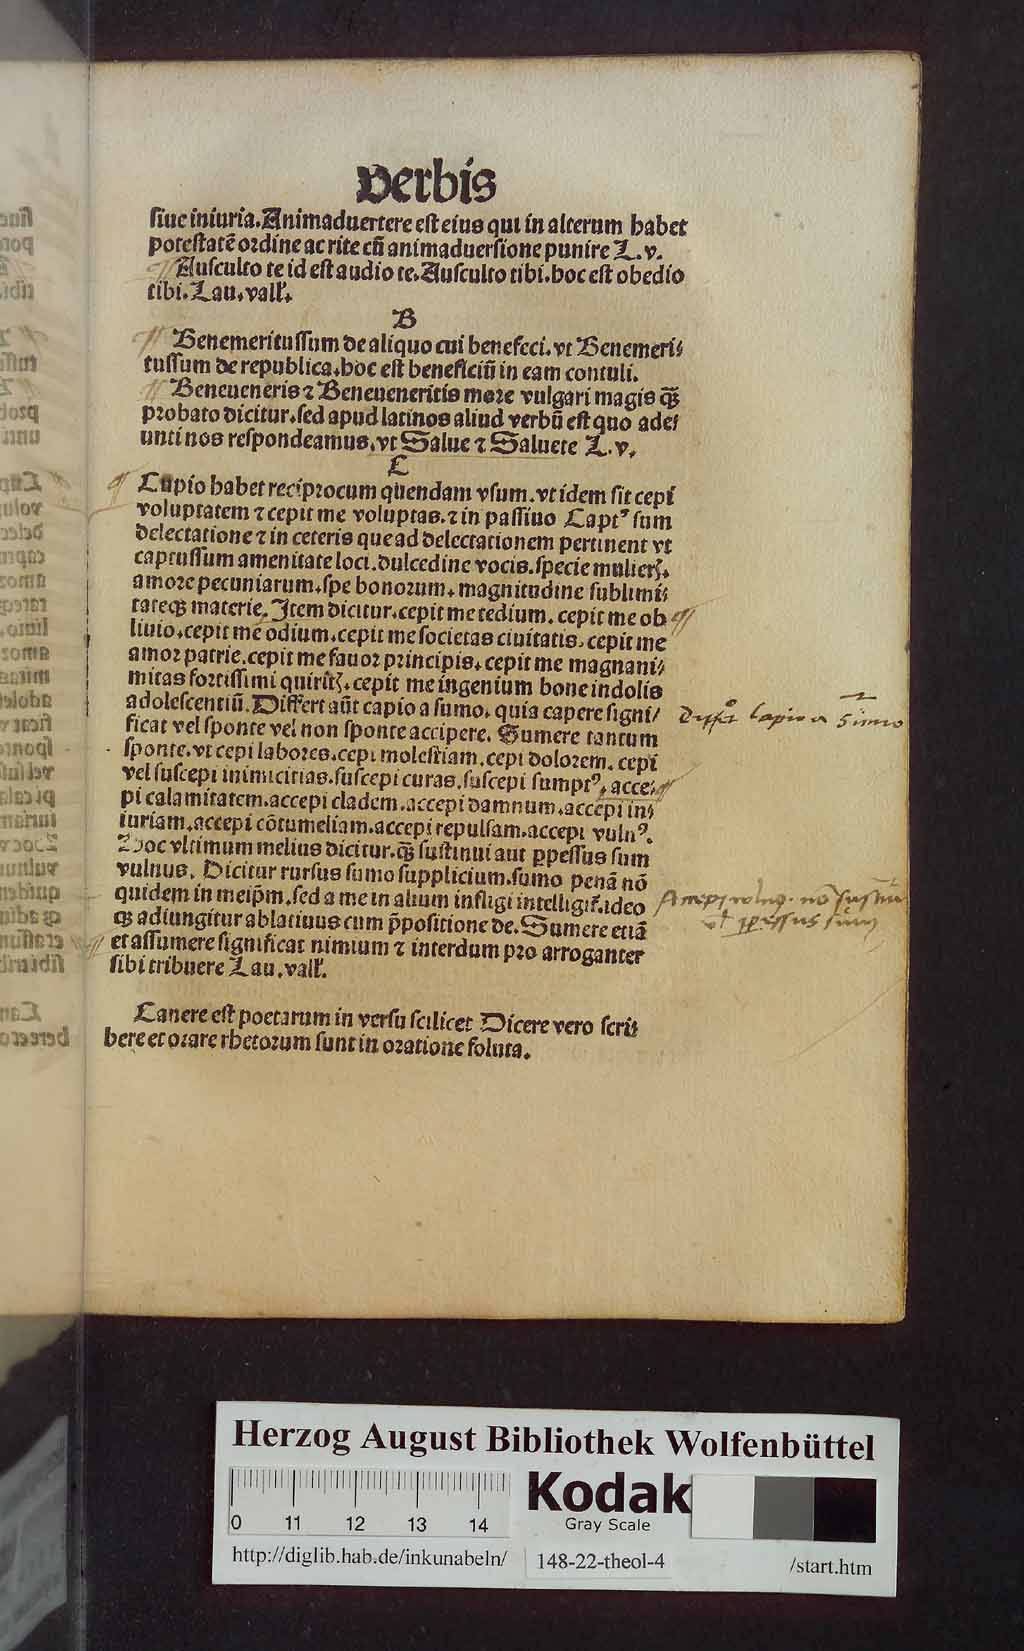 Verbis
siue iniuria. Animaduertere est eius qui in alterum habet
potestatē ordine ac rite cū animaduersione punire L. v.
Ausculto te id est audio te. Ausculto tibi. hoc est obedio
tibi. Lau. vall̄.
B
Benemeritussum de aliquo cui benefeci. vt Benemeri⸗
tussum de republica. hoc est beneficiū in eam contuli.
Beneueneris ⁊ Beneueneritis more vulgari magis qȝ
probato dicitur. sed apud latinos aliud verbū est quo ade⸗
unti nos respondeamus. vt Salue ⁊ Saluete L. v.
C
Cupio habet reciprocum quendam vsum. vt idem sit cepi
voluptatem ⁊ cepit me voluptas. ⁊ in passiuo Captꝰ sum
delectatione ⁊ in ceteris que ad delectationem pertinent vt
captussum amenitate loci. dulcedine vocis. specie mulierꝝ.
amore pecuniarum. spe bonorum. magnitudine sublimi⸗
tateqȝ materie. Item dicitur. cepit me tedium. cepit me ob
liuio. cepit me odium. cepit me societas ciuitatis. cepit me
amor patrie. cepit me fauor principis. cepit me magnani⸗
mitas fortissimi quiritꝝ. cepit me ingenium bone indolis
adolescentiū. Differt aūt capio a sumo. quia capere signi⸗
ficat vel sponte vel non sponte accipere. Sumere tantum
sponte. vt cepi labores. cepi molestiam. cepi dolorem. cepi
vel suscepi inimicitias. suscepi curas. suscepi sumptꝰ. acce⸗
pi calamitatem. accepi cladem. accepi damnum. accepi in⸗
iuriam. accepi cōtumeliam. accepi repulsam. accepi vulnꝰ.
Hoc vltimum melius dicitur. qȝ sustinui aut ꝑpessus sum
vulnus. Dicitur rursus sumo supplicium. sumo penā nō
quidem in meip̄m. sed a me in alium infligi intelligit̄. ideo
qȝ adiungitur ablatiuus cum p̄positione de. Sumere etiā
et assumere significat nimium ⁊ interdum pro arroganter
sibi tribuere Lau. vall̄.
Canere est poetarum in versu scilicet Dicere vero scri⸗
bere et orare rhetorum sunt in oratione soluta.
capio a Sumo
ꝑpessus sum
Herzog August Bibliothek Wolfenbüttel
0 11 12 13 14
Kodak
Gray Scale
http://diglib.hab.de/inkunabeln/ 148-22-theol-4 /start.htm